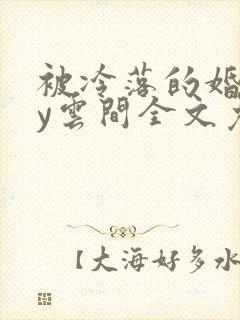 被冷落的婚
y雲間全文
【大海好多水